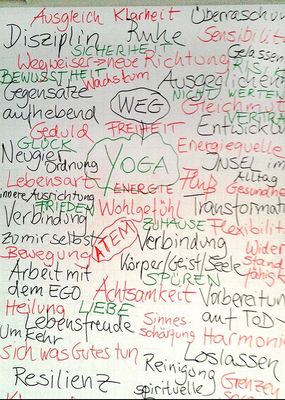 Ausgleich Klarheit
Überraschun
Disziplin Ruhe
Sensibilit
SICHERHEIT
Gelassen
Wegweiser neue Richtung
BEWUSSTHEIT
Wachstum
Ausgeglichen
Gegensätze
aufhebend
WEG
NICHT WERTEN
Gleichmut
VERTRA
Geduld
FREIHEIT
Entwicklun
GLÜCK
Energiequelle
Neugier
Ordnung
YOGA
INSEL im
Alltag
Lebensart
ENERGIE
Fluß
Gesundhei
innere Ausrichtung
FRIEDEN
Wohlgefühl
Transformati
Verbindung
ZUHAUSE
Flexibilitä
zu mir selbst
ATEM
Verbindung
Wider
stand
fähigk
Bewegung
Körper/Geist/Seele
Arbeit mit
dem EGO
SPÜREN
Achtsamkeit
Vorbereitun
auf TOD
Heilung
LIEBE
Lebensfreude
Sinnes-
schärfung
Harmoni
Umkehr
sich was Gutes tun
Loslassen
Reinigung
Resilienz
spirituelle
Grenzen